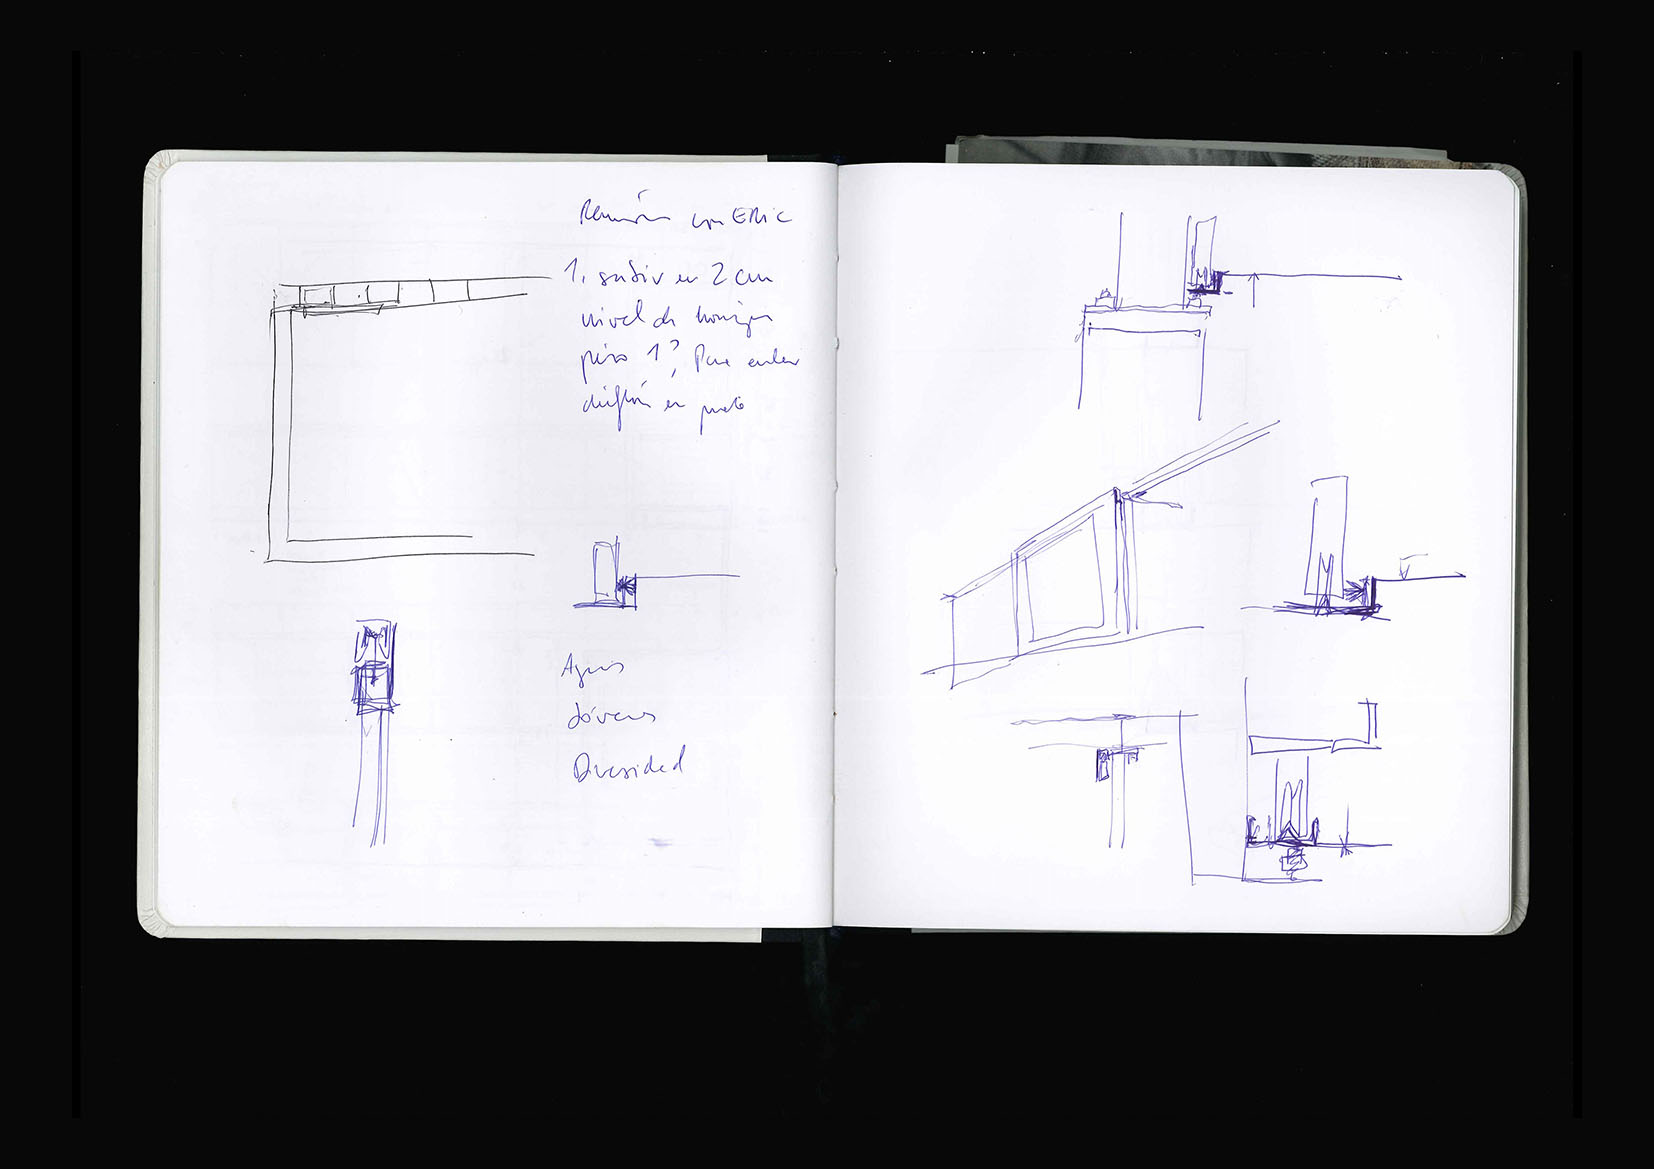 Reunión con ERIC
1. subir en 2 cm
nivel de hormigón
piso 1? Para evitar
en
Aguas
Jóvenes
Diversidad